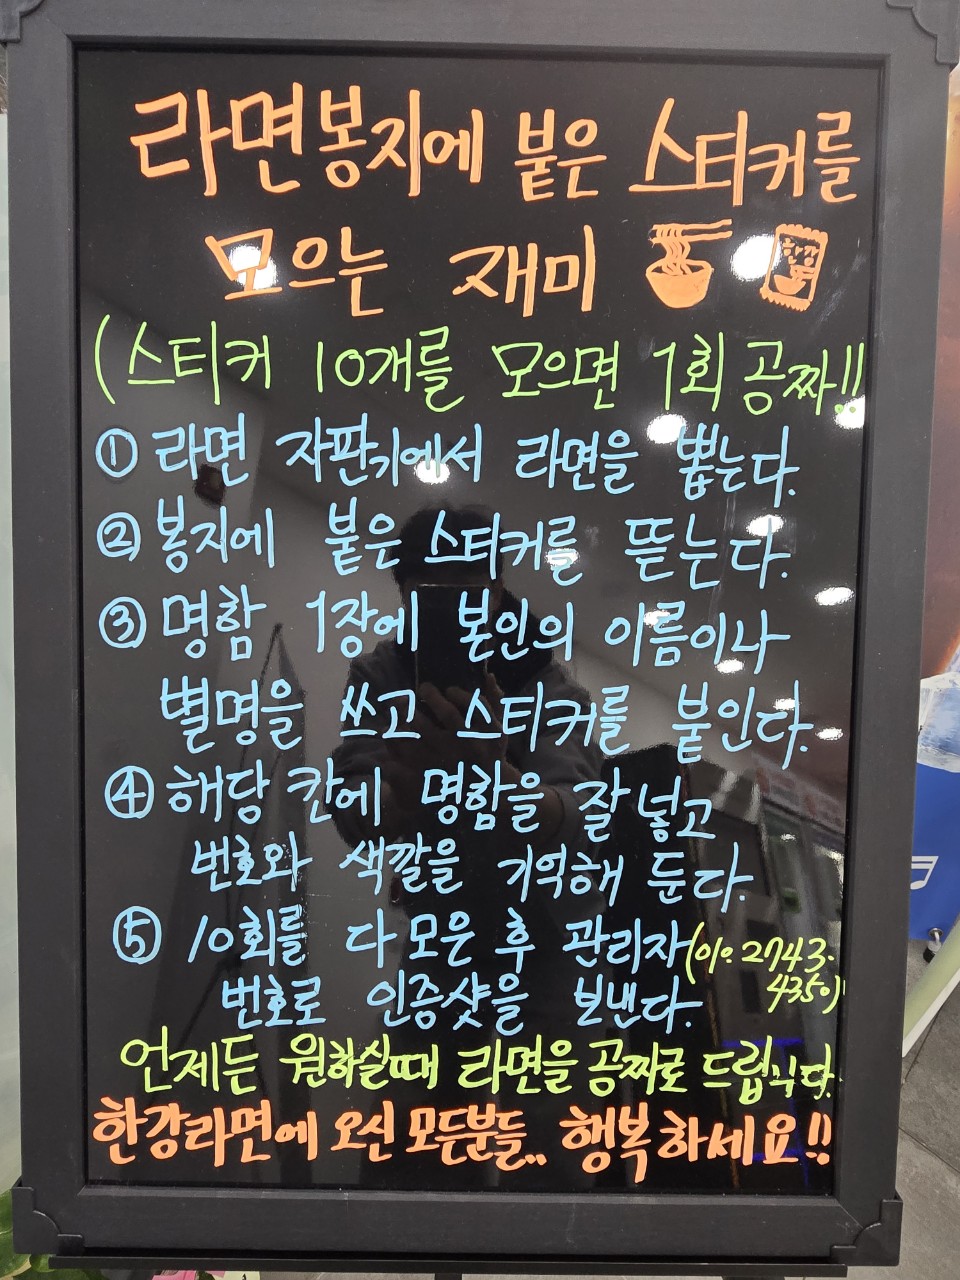 라면봉지에 붙은 스티커를
모으는 재미
한강
(스티커 10개를 모으면 1회 공짜!!
① 라면 자판기에서 라면을 뽑는다.
② 봉지에 붙은 스티커를 뜯는다.
③ 명함 1장에 본인의 이름이나
별명을 쓰고 스티커를 붙인다.
④ 해당 칸에 명함을 잘 넣고
번호와 색깔을 기억해 둔다.
⑤ 10회를 다 모은 후 관리자(010.2743.
4350)
번호로 인증샷을 보낸다.
언제든 원하실때 라면을 공짜로 드립니다.
한강라면에 오신 모든분들.. 행복하세요!!